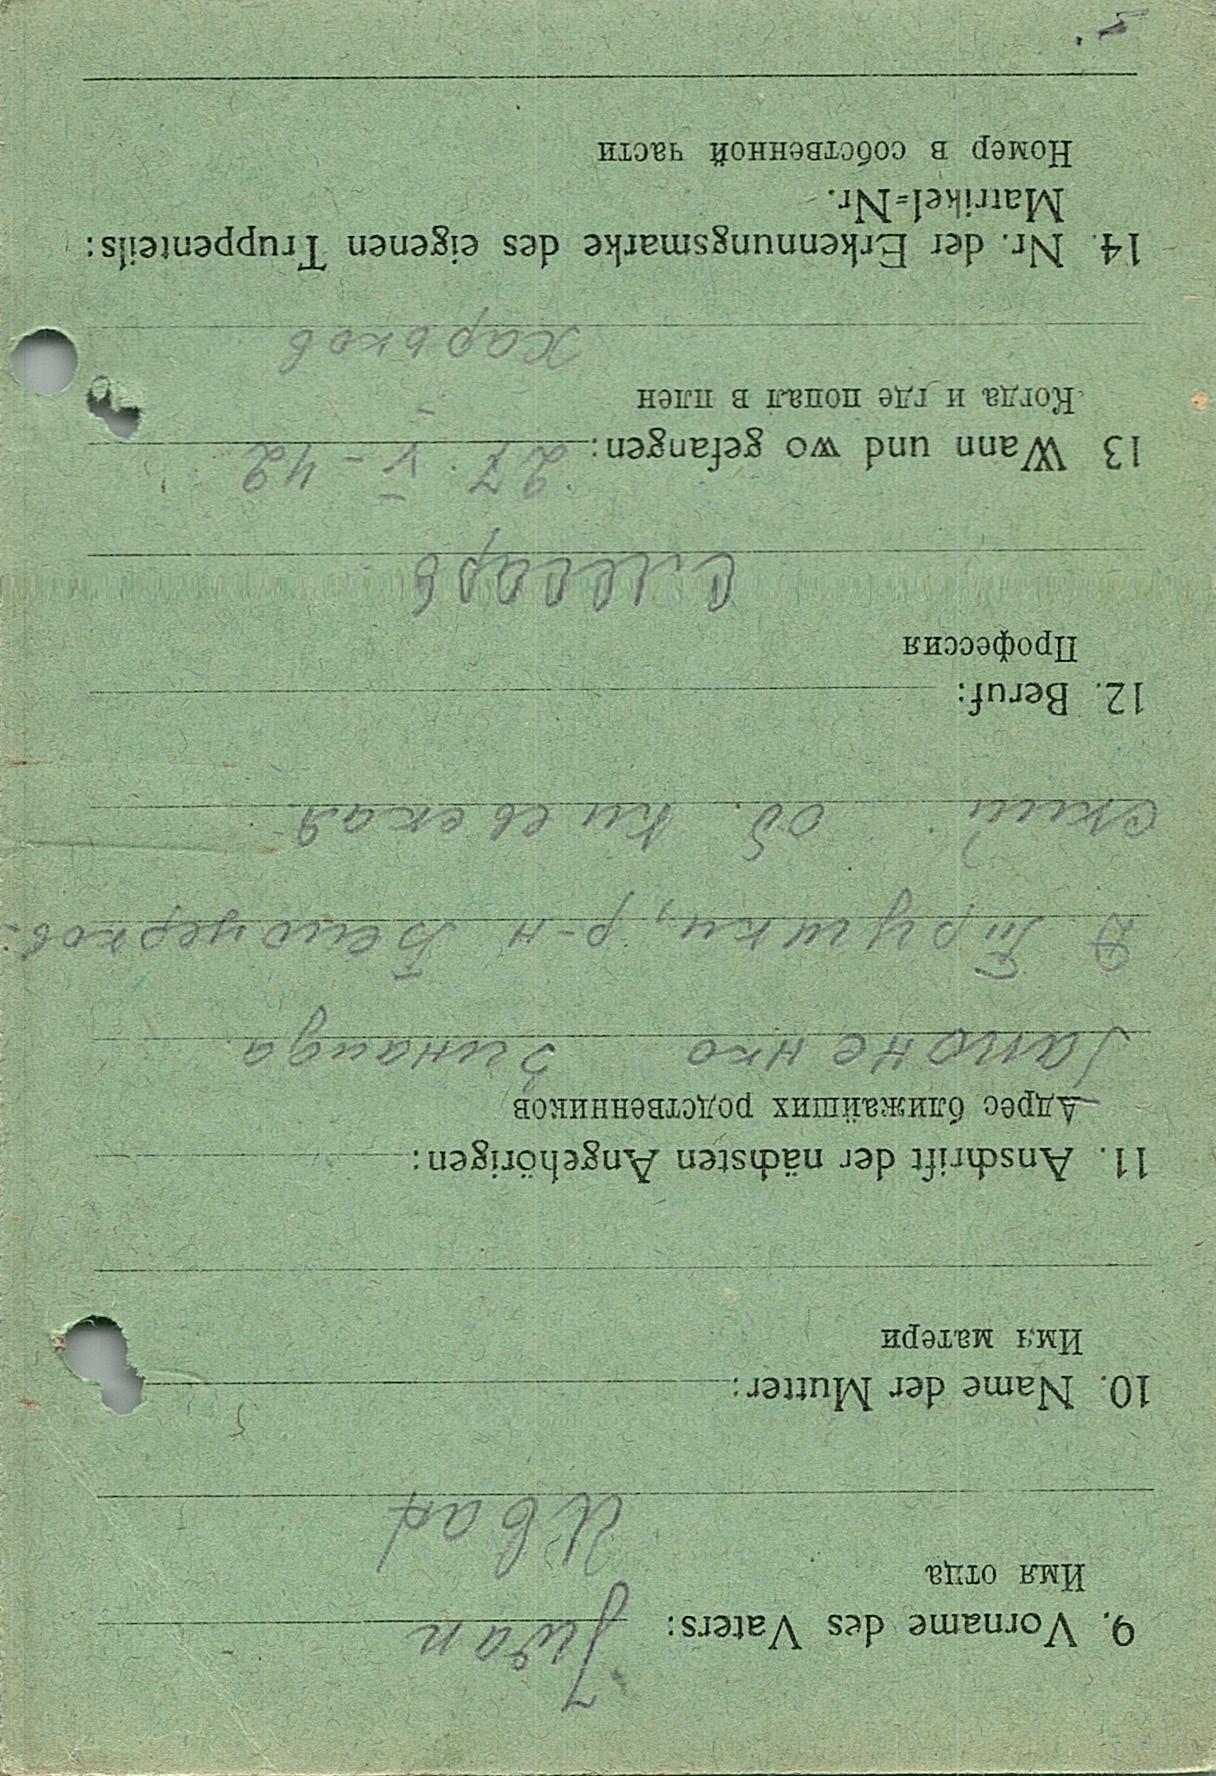 9. Vorname des Vaters: Iwan
Имя отца
Иван
10. Name der Mutter:
Имя матери
11. Anschrift der nächsten Angehörigen:
Адрес ближайших родственников
Гапоненко Зинаида
Д. Трушки, р-н Белоцерков-
ский об. Киевская
12. Beruf:
Профессия
Слесарь
13 Wann und wo gefangen: 27. V - 42
Когда и где попал в плен
Харьков
14. Nr. der Erkennungsmarke des eigenen Truppenteils:
Matrikel=Nr.
Номер в собственной части